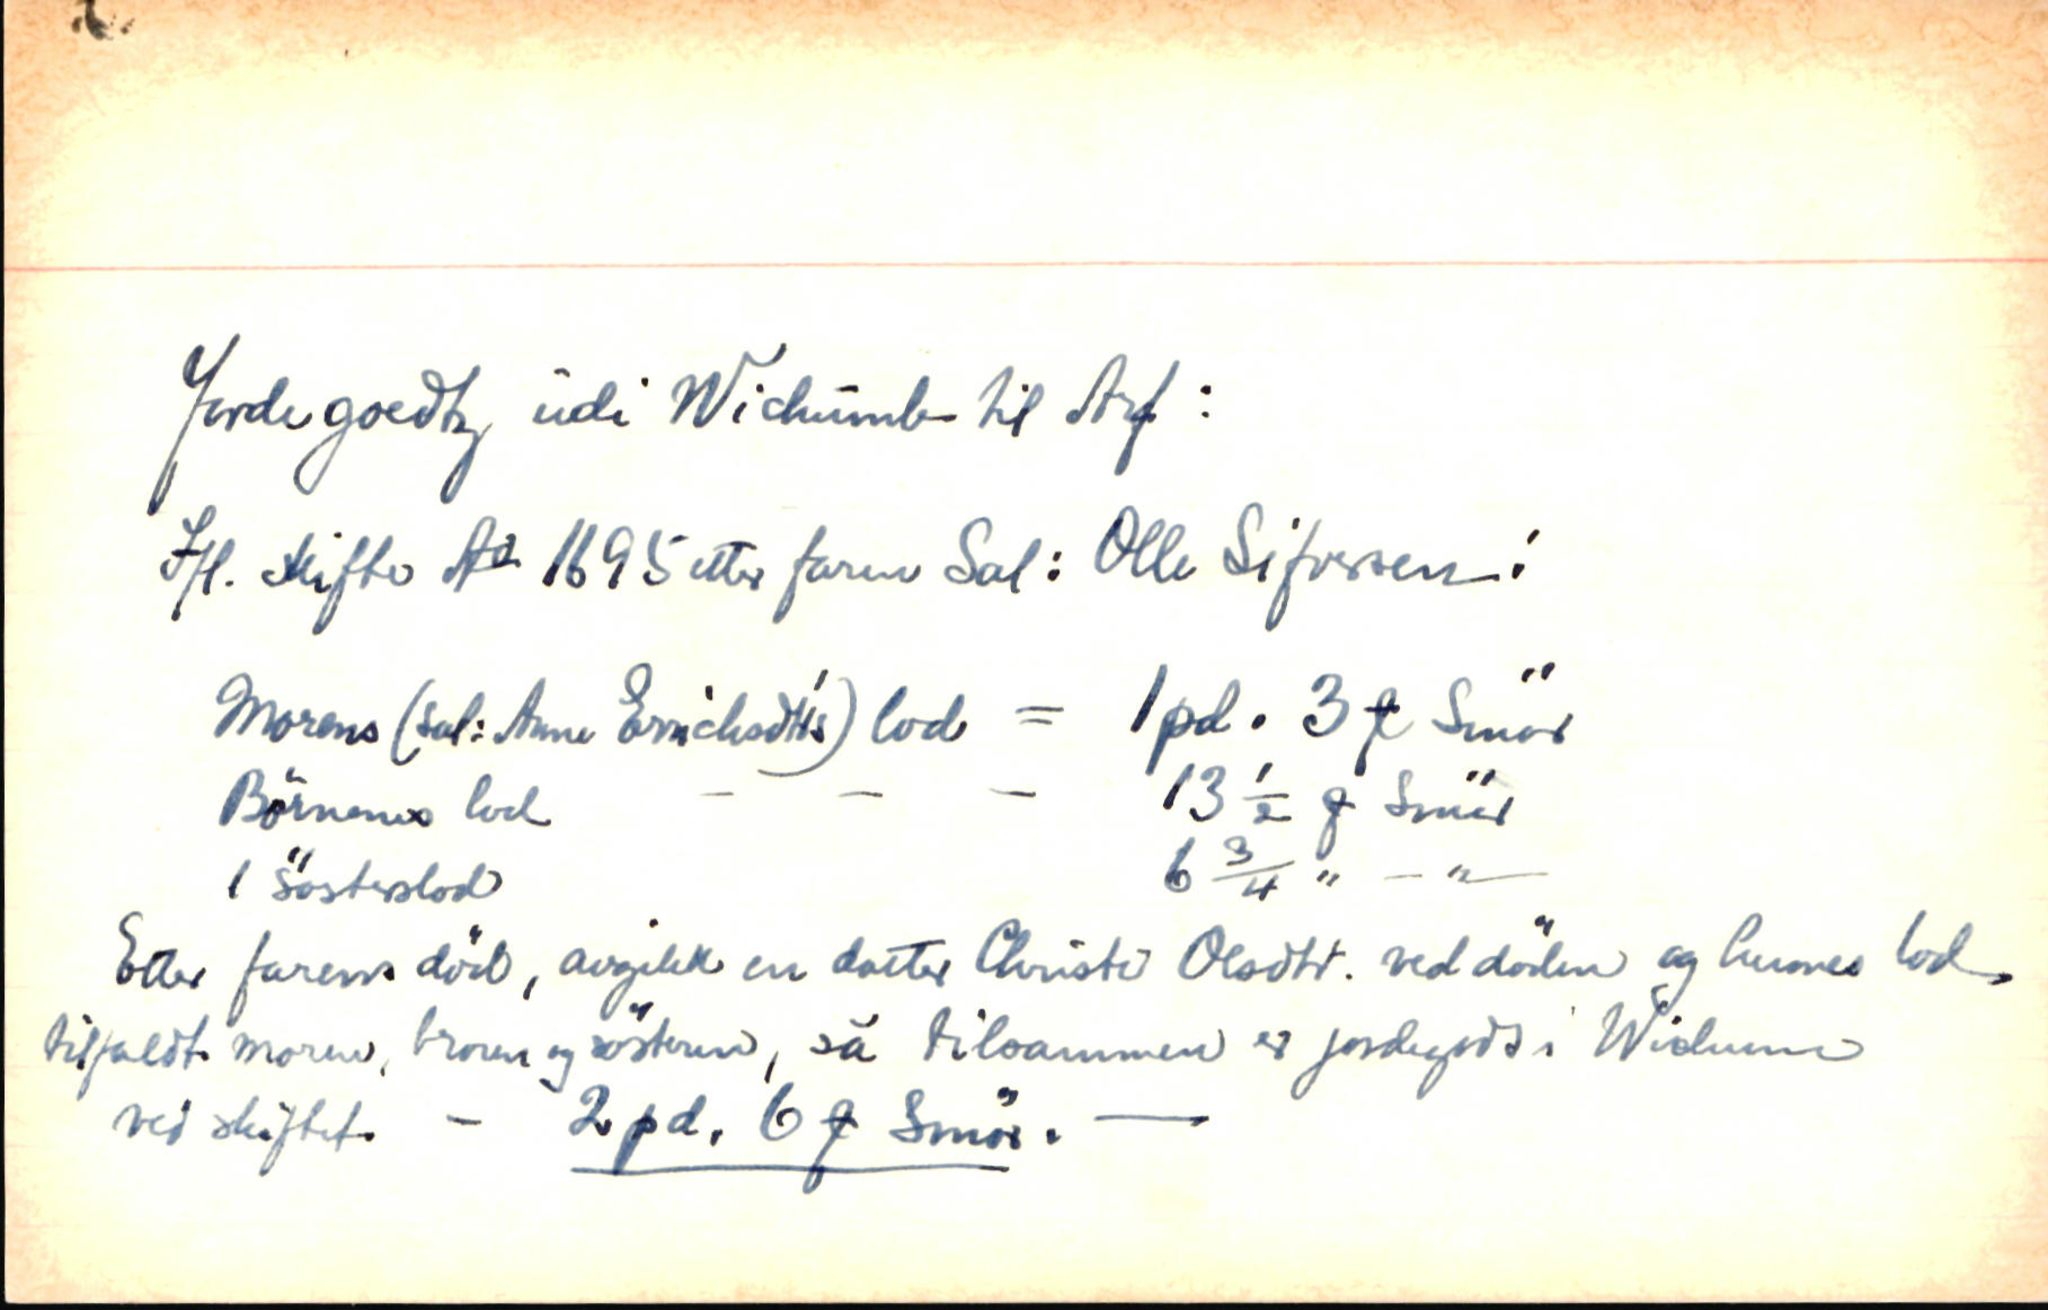 Jordegoedtz üdi Wichümb til Arf :
Ifl. skifte Aº 1695 etter faren Sal: Olle Sifversen:
Morens (sal: Anne Erichsdtr's) lod = 1 pd. 3 ℔ Smör
Börnenes lod - - - 13 1/2 ℔ Smör
1 Søsterslod 6 3/4 " - " -
Etter farens död, avgikk en datter Christi Olsdtr. ved döden og hennes lod,
tilfaldt moren, broren og søsteren, så tilsammen er jordegods i Wichum
ved skiftet. - 2 pd. 6 ℔ Smör. -